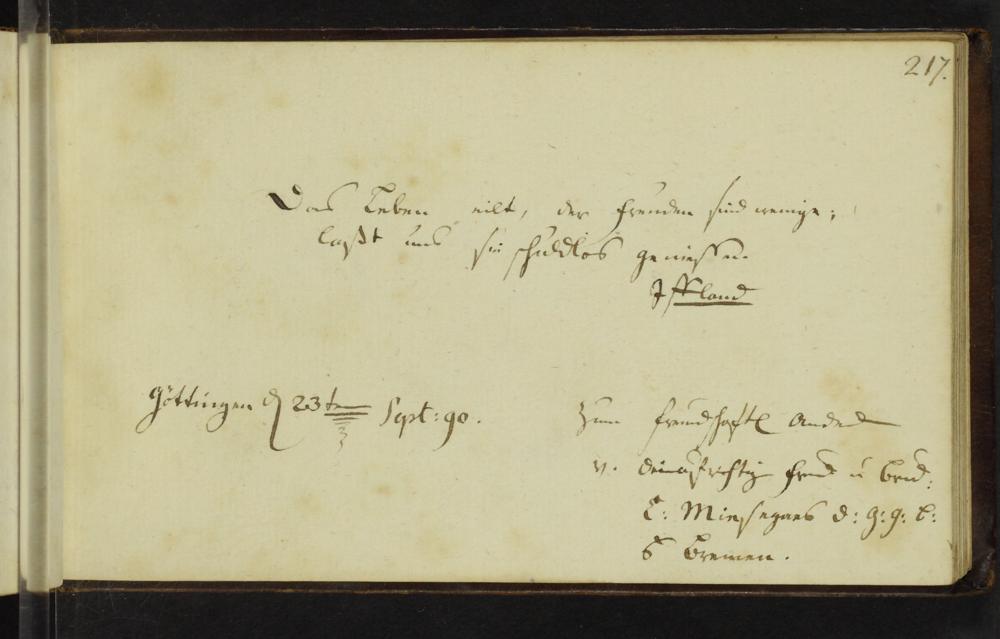 217.
Das Leben eilt, der Freuden sind wenige;
laßt uns sie schuldlos geniessen.
Iffland
Göttingen d 23ten Sept: 90.
Zum freundschaftl Andenk
v. deinem Freund u Brud:
C: Miesegaes d: G: g: b:
Bremen.